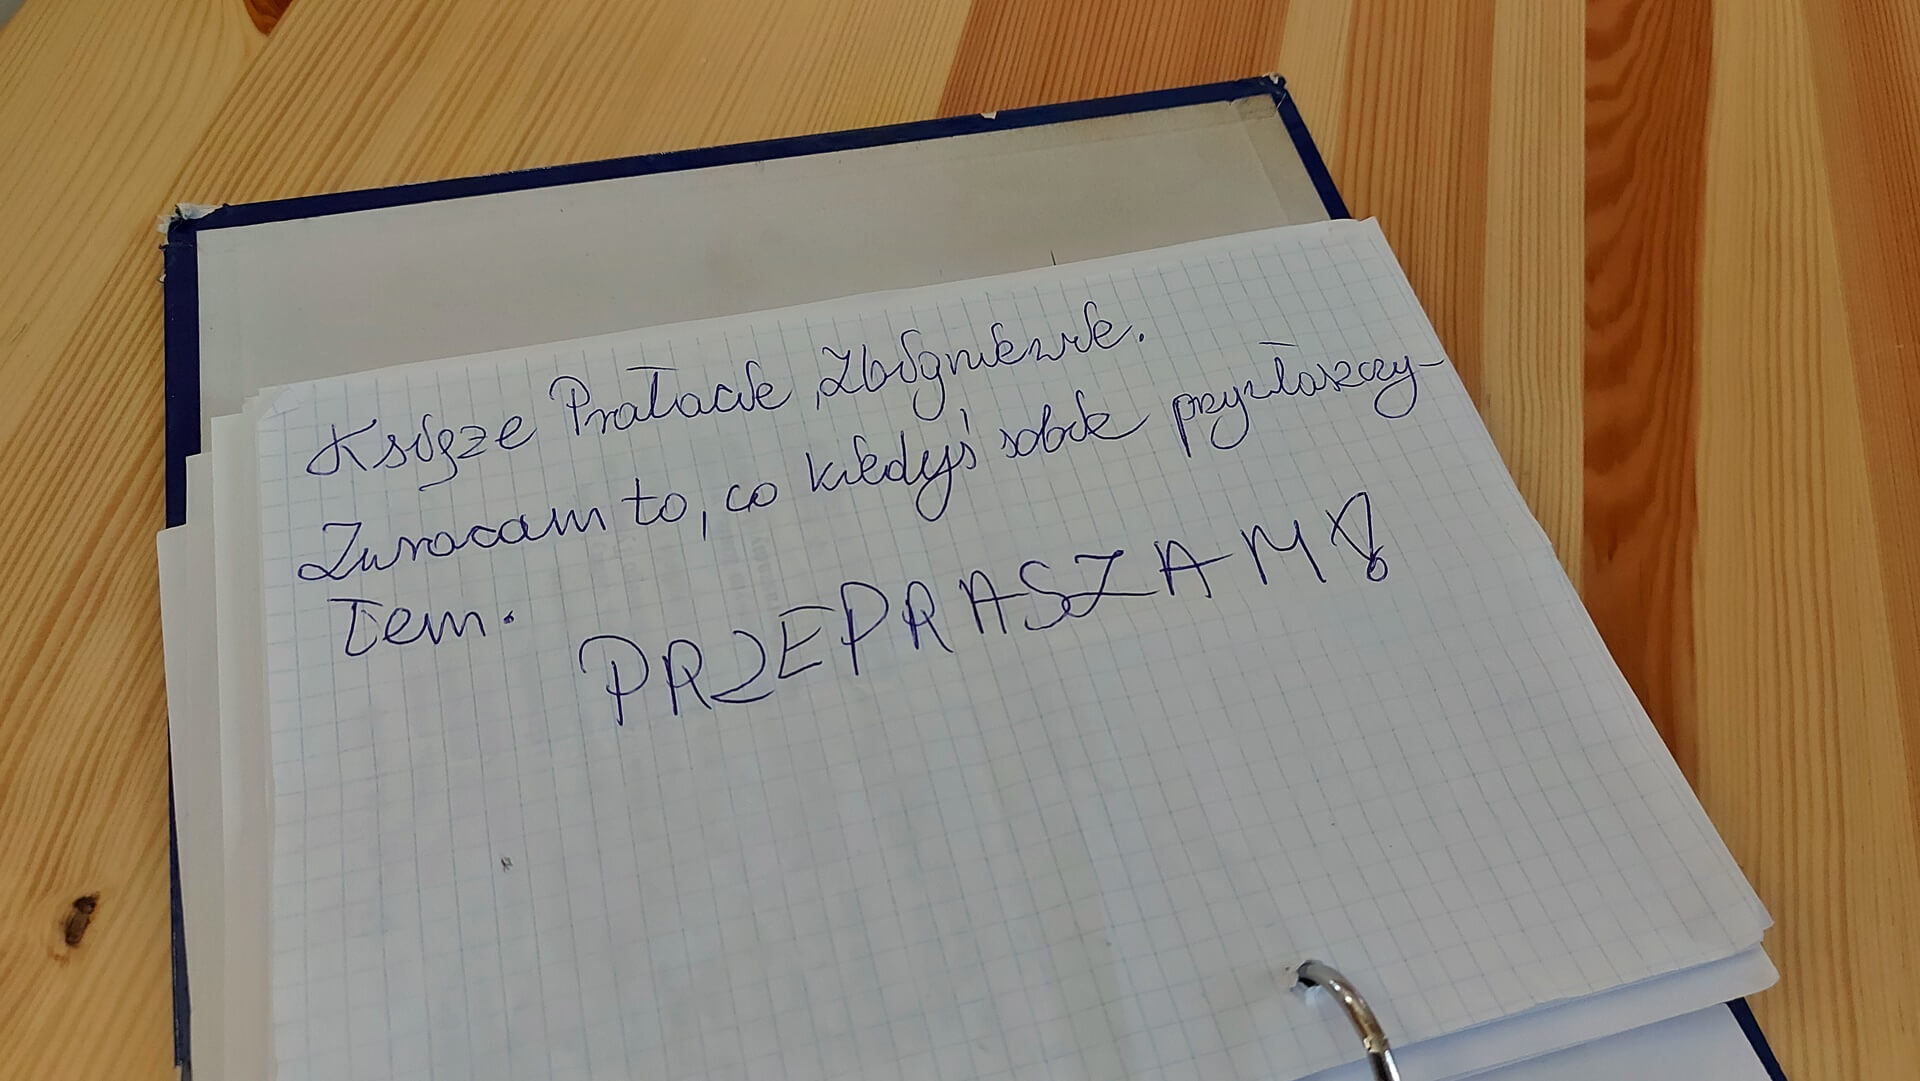 Księże Prałacie Zbigniewie.
Zwracam to, co kiedyś sobie przywłaszczy-
łem. PRZEPRASZAM!